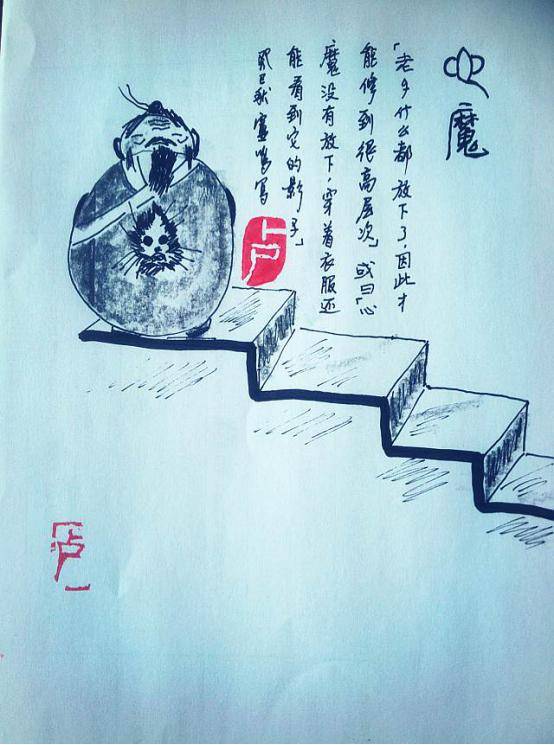 心魔
「老什么都放下了,因此才
能修到很高层次」或曰「心
魔没有放下,穿着衣服还
能看到它的影子」
癸巳秋写
卢
卢